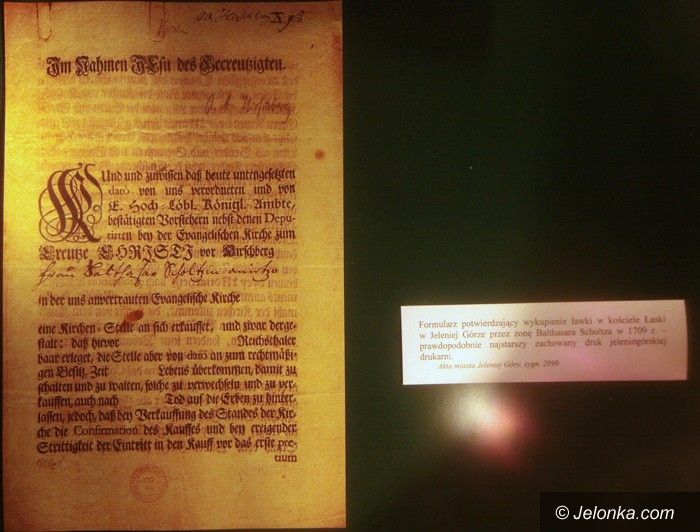 Im Nahmen JEsu des Gecreutzigten.
KUnd und zuwissen daß heute untengesetzten
dato von uns verordneten und von
E. Hoch-Löbl. Königl. Ambte,
bestätigten Vorstehern nebst denen Depu-
tirten bey der Evangelischen Kirche zum
Creutze CHRISTI vor Hirschberg
Frau Balthasar Scholtzin
in der uns anvertrauten Evangelische Kirche
eine Kirchen-Stelle an sich erkauffet, und zwar derge-
stalt: daß hievor Reichsthaler
baar erleget, die Stelle aber von dato an zum rechtmäßi-
gen Besitz, Zeit Lebens überkommen, damit zu
schalten und zu walten, solche zu verwechseln und zu ver-
kauffen, auch nach Tod auf die Erben zu hinter-
lassen, jedoch, daß bey Verkauffung des Standes der Kir-
che die Confirmation des Kauffes und bey ereigender
Strittigkeit der Eintritt in den Kauff vor das erste pre-
tium
Formularz potwierdzający wykupienie ławki w kościele Łaski
w Jeleniej Górze przez żonę Balthasara Scholtza w 1709 r. –
prawdopodobnie najstarszy zachowany druk jeleniogórskiej
drukarni.
Akta miasta Jeleniej Góry, sygn. 2899
© Jelonka.com